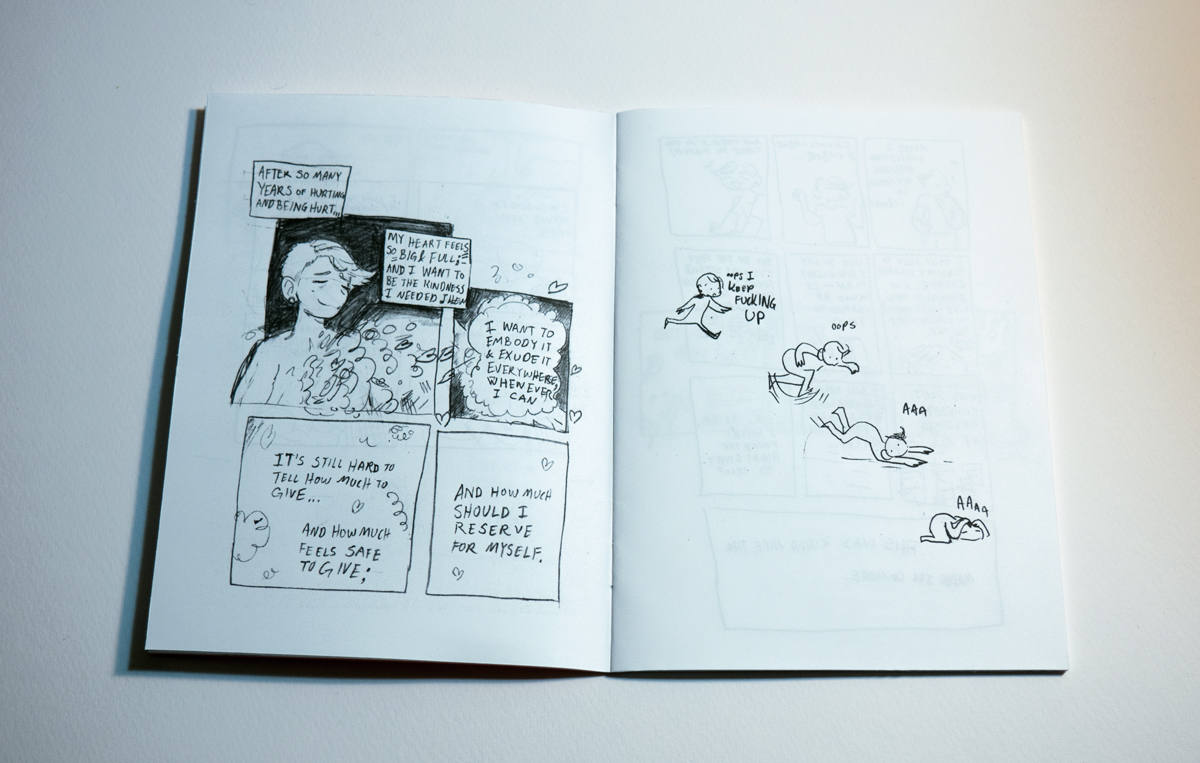 AFTER SO MANY
YEARS OF HURTING
AND BEING HURT...
MY HEART FEELS
SO BIG & FULL;
AND I WANT TO
BE THE KINDNESS
I NEEDED THEN
I WANT TO
EMBODY IT
& EXUDE IT
EVERYWHERE,
WHENEVER
I CAN
IT'S STILL HARD TO
TELL HOW MUCH TO
GIVE...
AND HOW MUCH
FEELS SAFE
TO GIVE;
AND HOW MUCH
SHOULD I
RESERVE
FOR MYSELF.
I
KEEP
FUCKING
UP
OOPS
AAA
AAAA